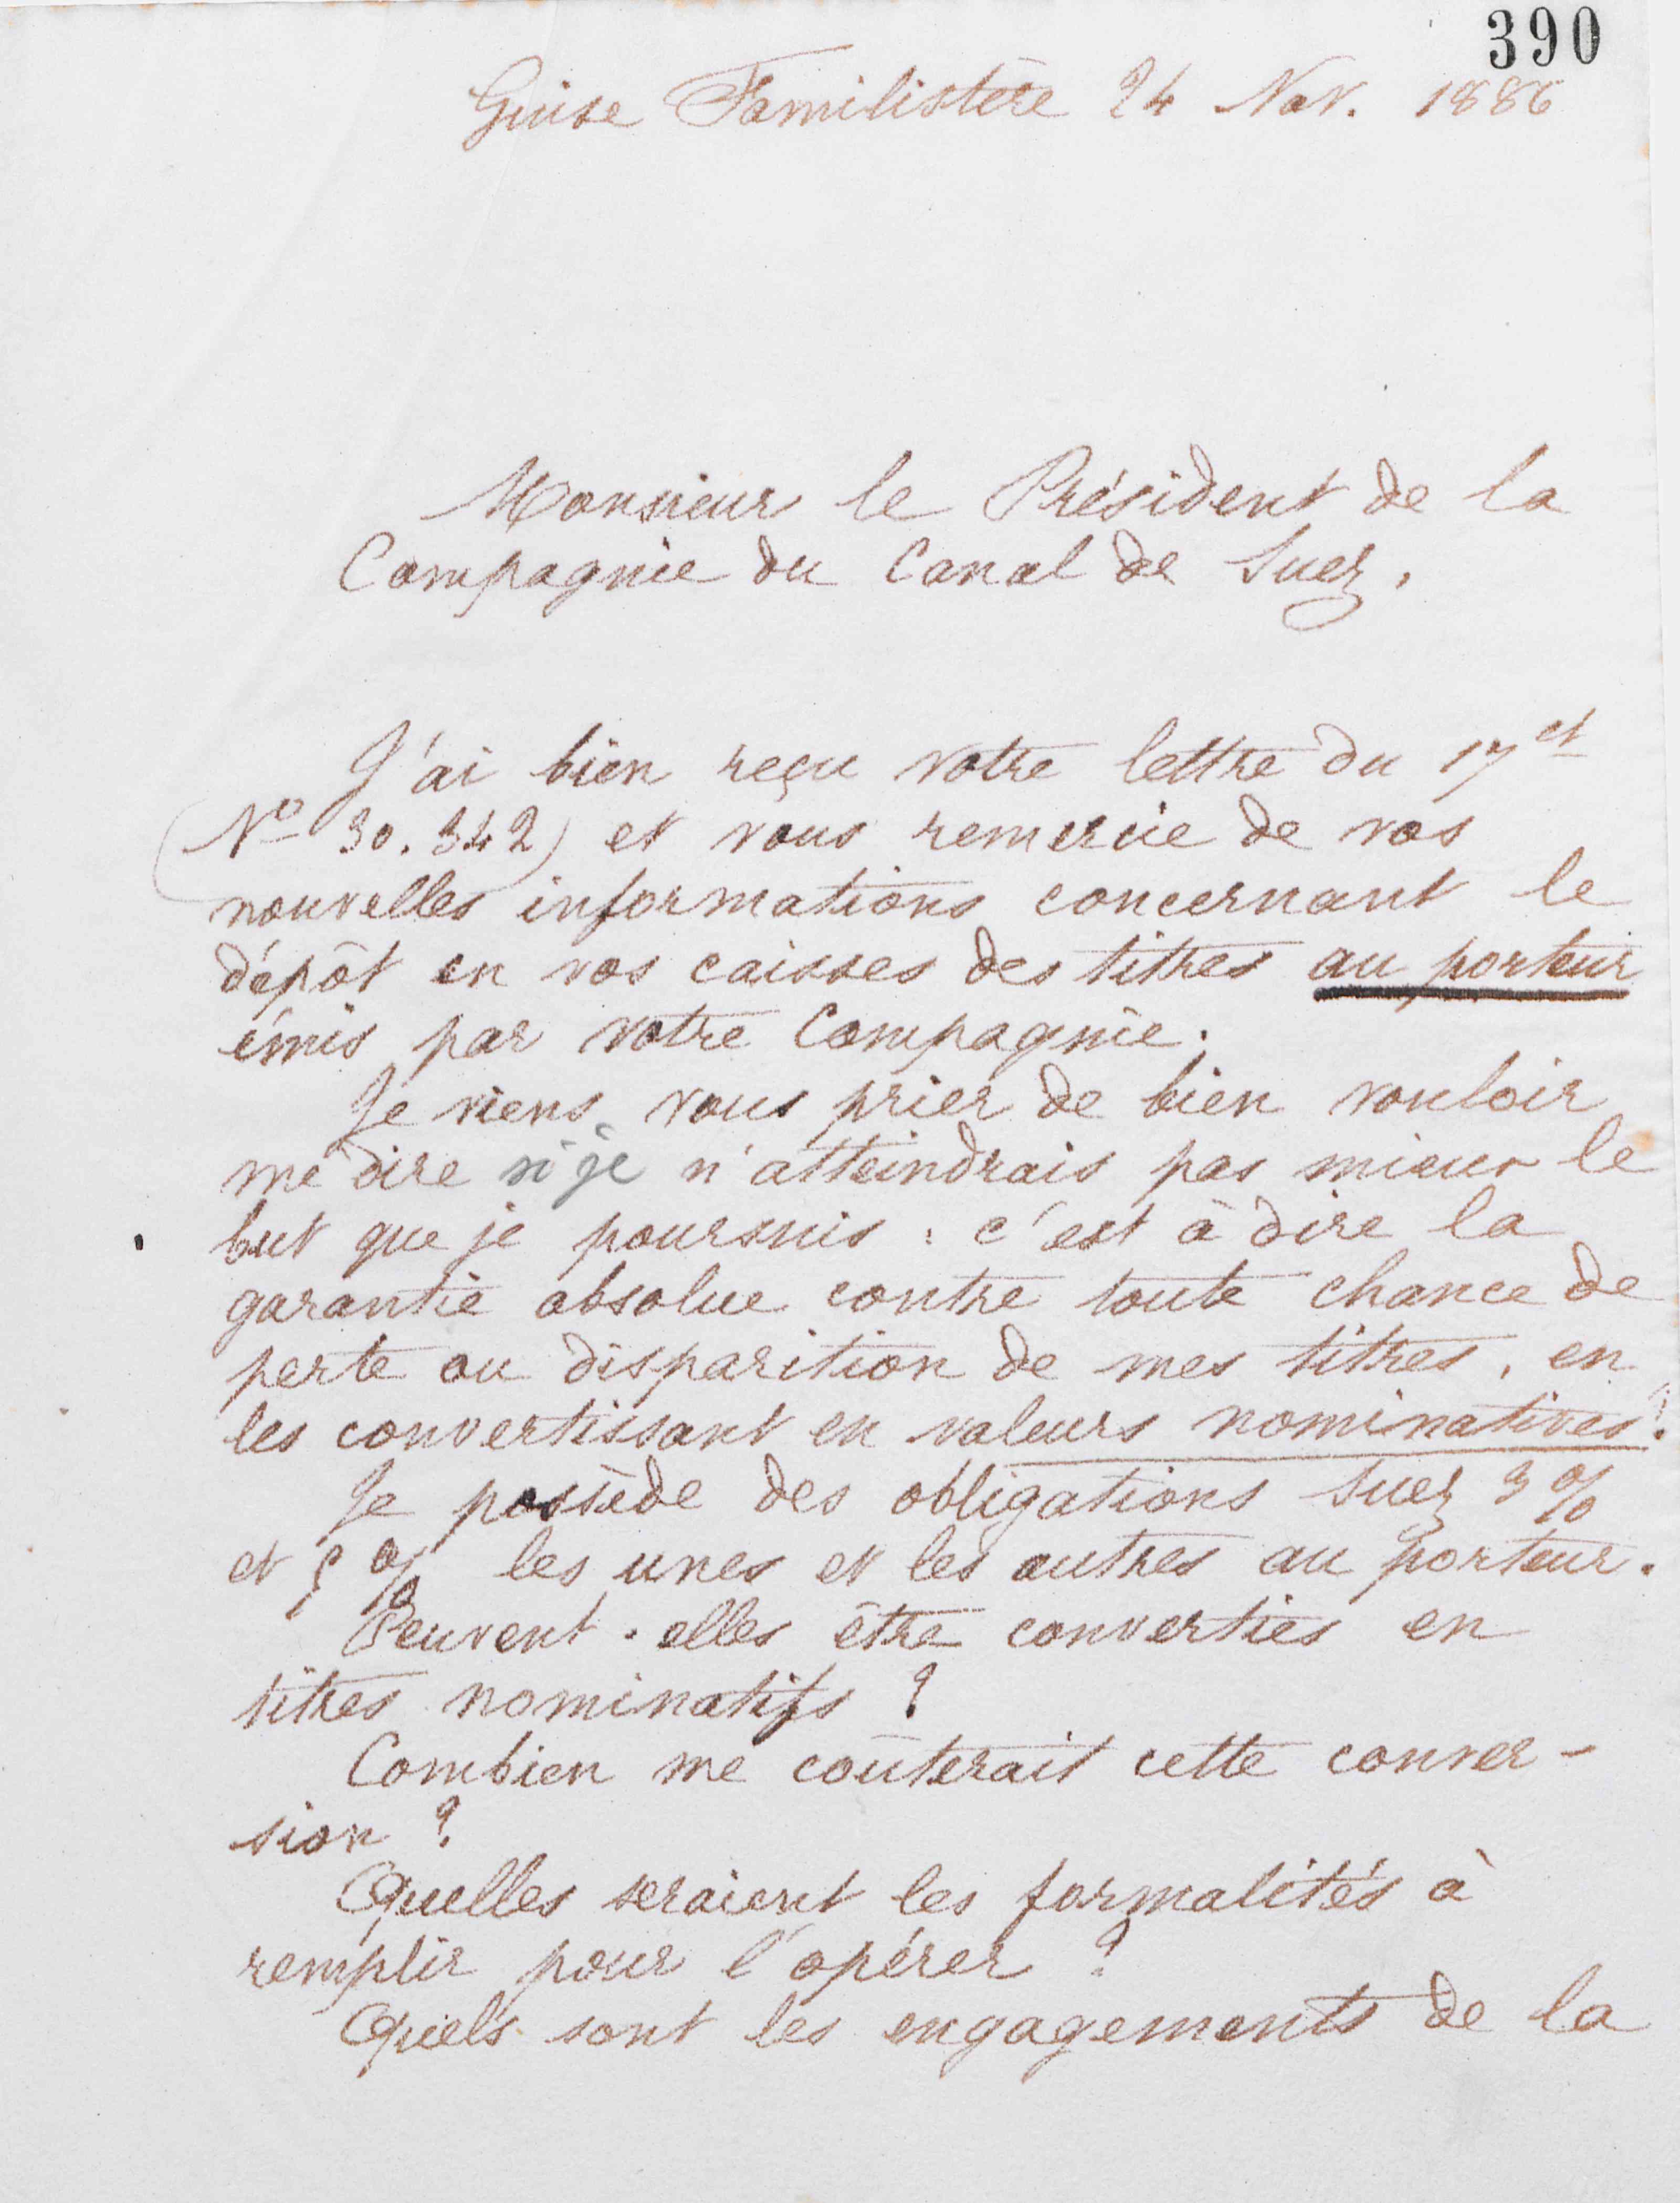 390
Guise Familistère 24 Nov. 1886
Monsieur le Président de la
Compagnie du Canal de Suez,
J'ai bien reçu votre lettre du 17 ct
(No 30.342) et vous remercie de vos
nouvelles informations concernant le
dépôt en vos caisses des titres au porteur
émis par votre Compagnie.
Je viens vous prier de bien vouloir
me dire si je n'atteindrais pas mieux le
but que je poursuis : c'est à dire la
garantie absolue contre toute chance de
perte ou disparition de mes titres, en
les convertissant en valeurs nominatives ?
Je possède des obligations Suez 3 %
et 5 % les unes et les autres au porteur.
Peuvent-elles être converties en
titres nominatifs ?
Combien me coûterait cette conver-
sion ?
Quelles seraient les formalités à
remplir pour l'opérer ?
Quels sont les engagements de la